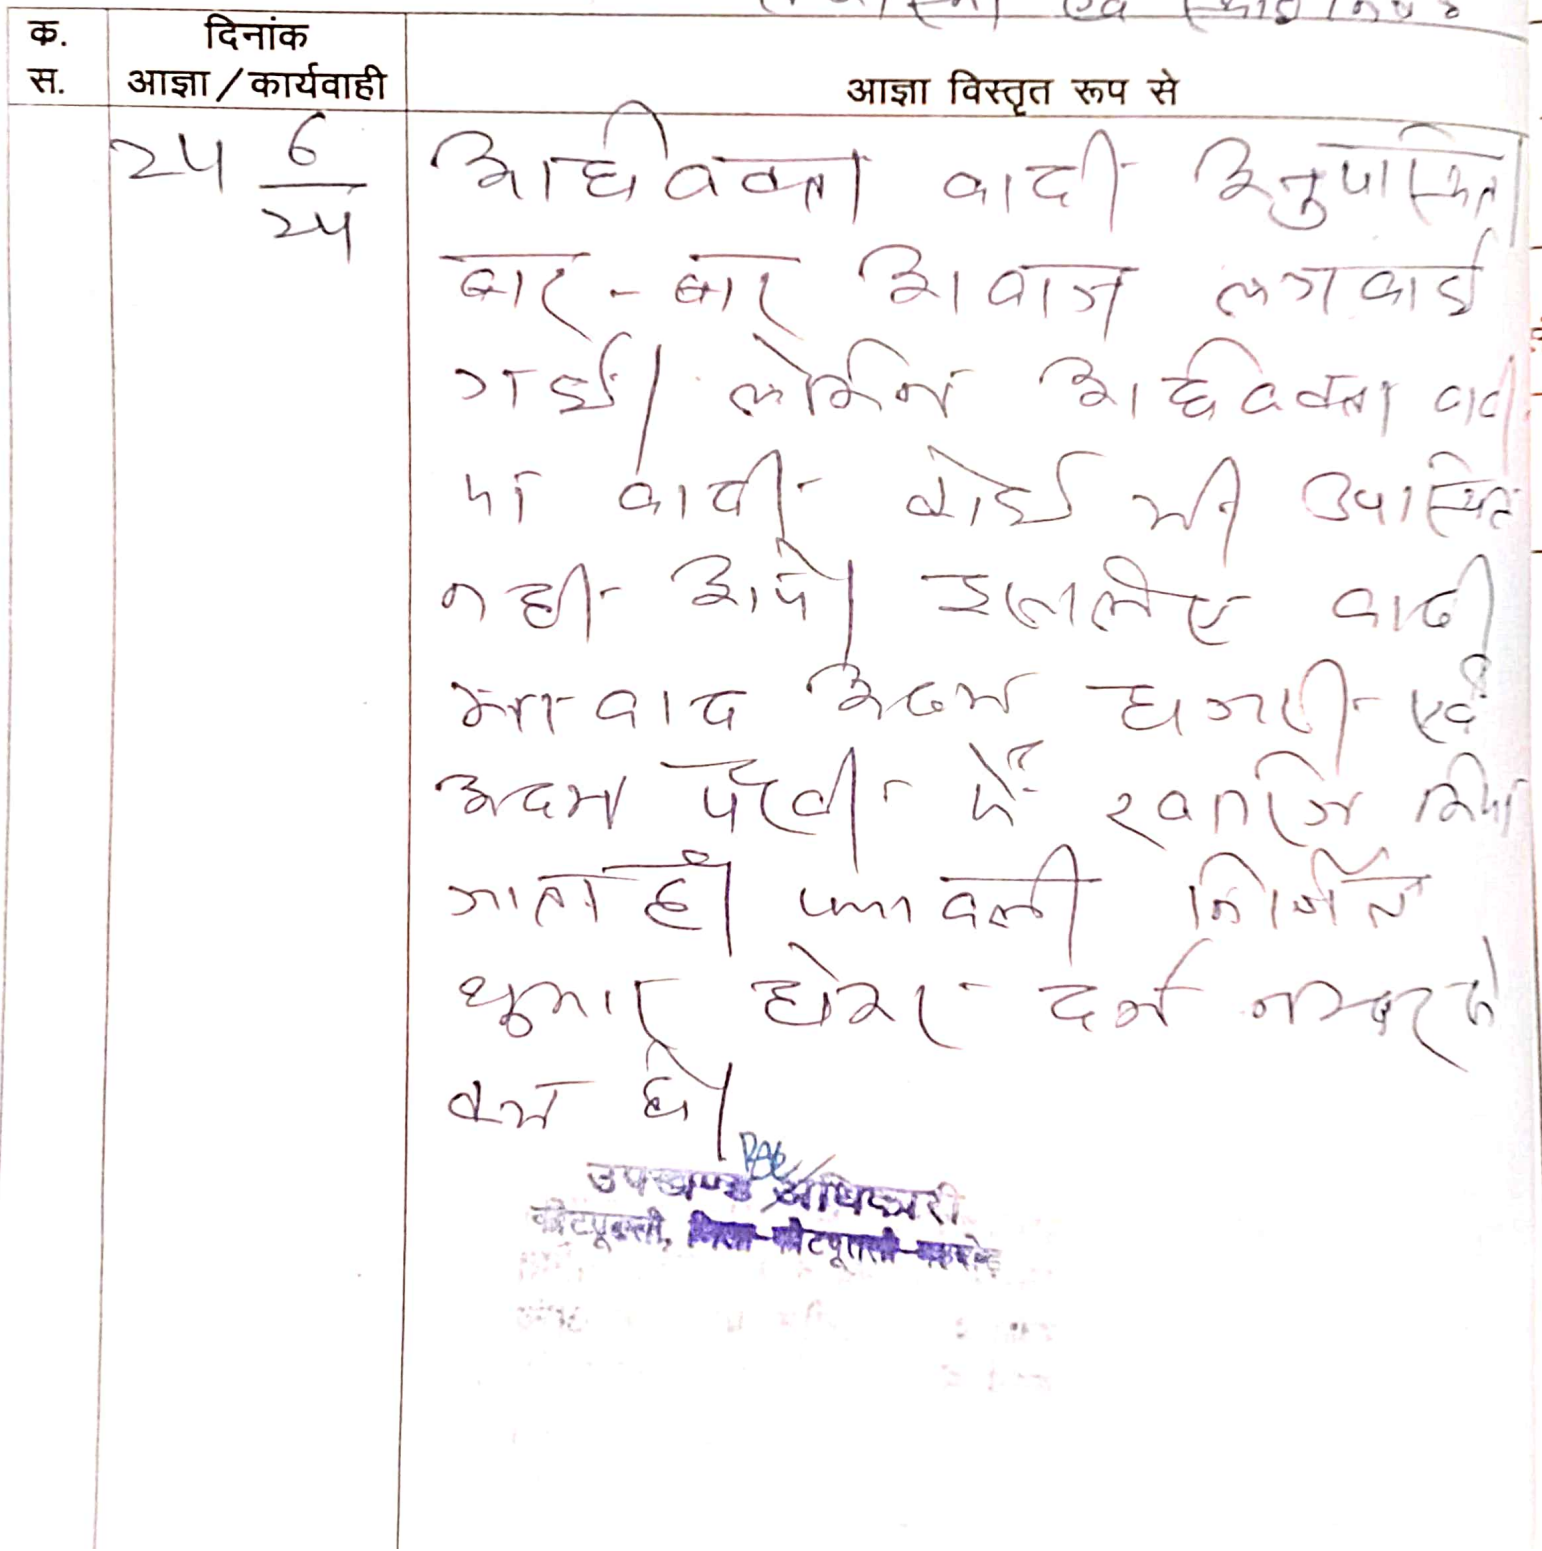 एवं
क. दिनांक
स. आज्ञा/कार्यवाही आज्ञा विस्तृत रूप से
24 6/24 अधिवक्ता वादी अनुपस्थित
बार-बार आवाज लगवाई
गई। लेकिन अधिवक्ता वादी
या वादी कोई भी उपस्थित
नही आये। इसलिए वादी
का वाद अदम हाजरी एवं
अदम पैरवी में खारिज किया
जाता है। पत्रावली निर्णित
शुमार होकर दर्ज नम्बर से
कम हो।
उपखण्ड अधिकारी
कोटपूतली, जिला-कोटपूतली-बहरोड़